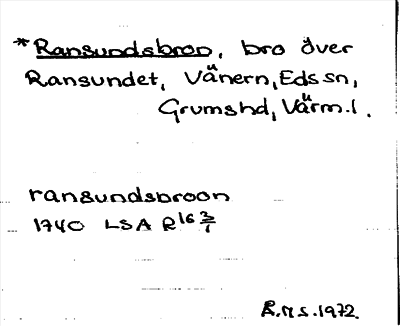 *Ransundsbron, bro över
Ransundet, Vänern, Eds sn,
Grums hd, Värml.
ransundsbroon
1740 LSA R16 3/1
R.M.S. 1972.